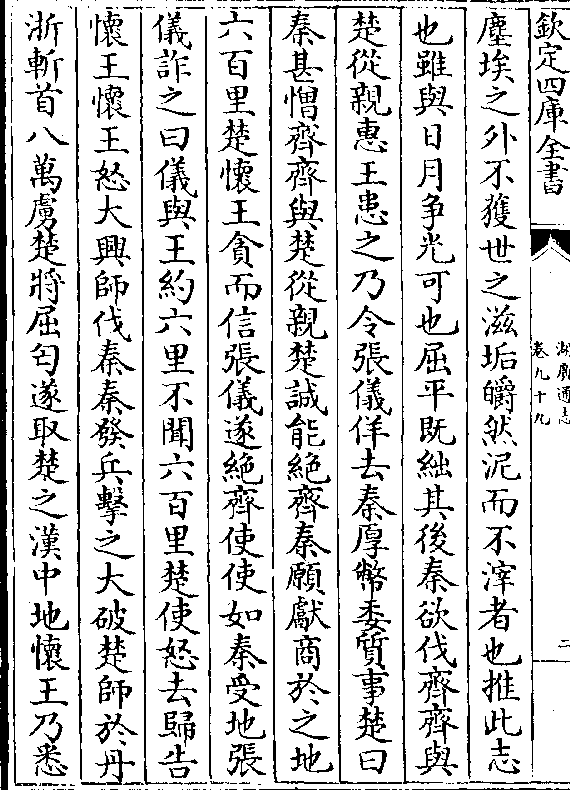 欽定四庫全書
湖廣通志
卷九十九
二
塵埃之外不獲世之滋垢皭然泥而不滓者也推此志
也雖與日月争光可也屈平既絀其後秦欲伐齊齊與
楚從親惠王患之乃令張儀佯去秦厚幣委質事楚曰
秦甚憎齊齊與楚從親楚誠能絶齊秦願獻商於之地
六百里楚懷王貪而信張儀遂絶齊使使如秦受地張
儀詐之曰儀與王約六里不聞六百里楚使怒去歸告
懷王懷王怒大興師伐秦秦發兵擊之大破楚師於丹
浙斬首八萬虜楚將屈匄遂取楚之漢中地懷王乃悉